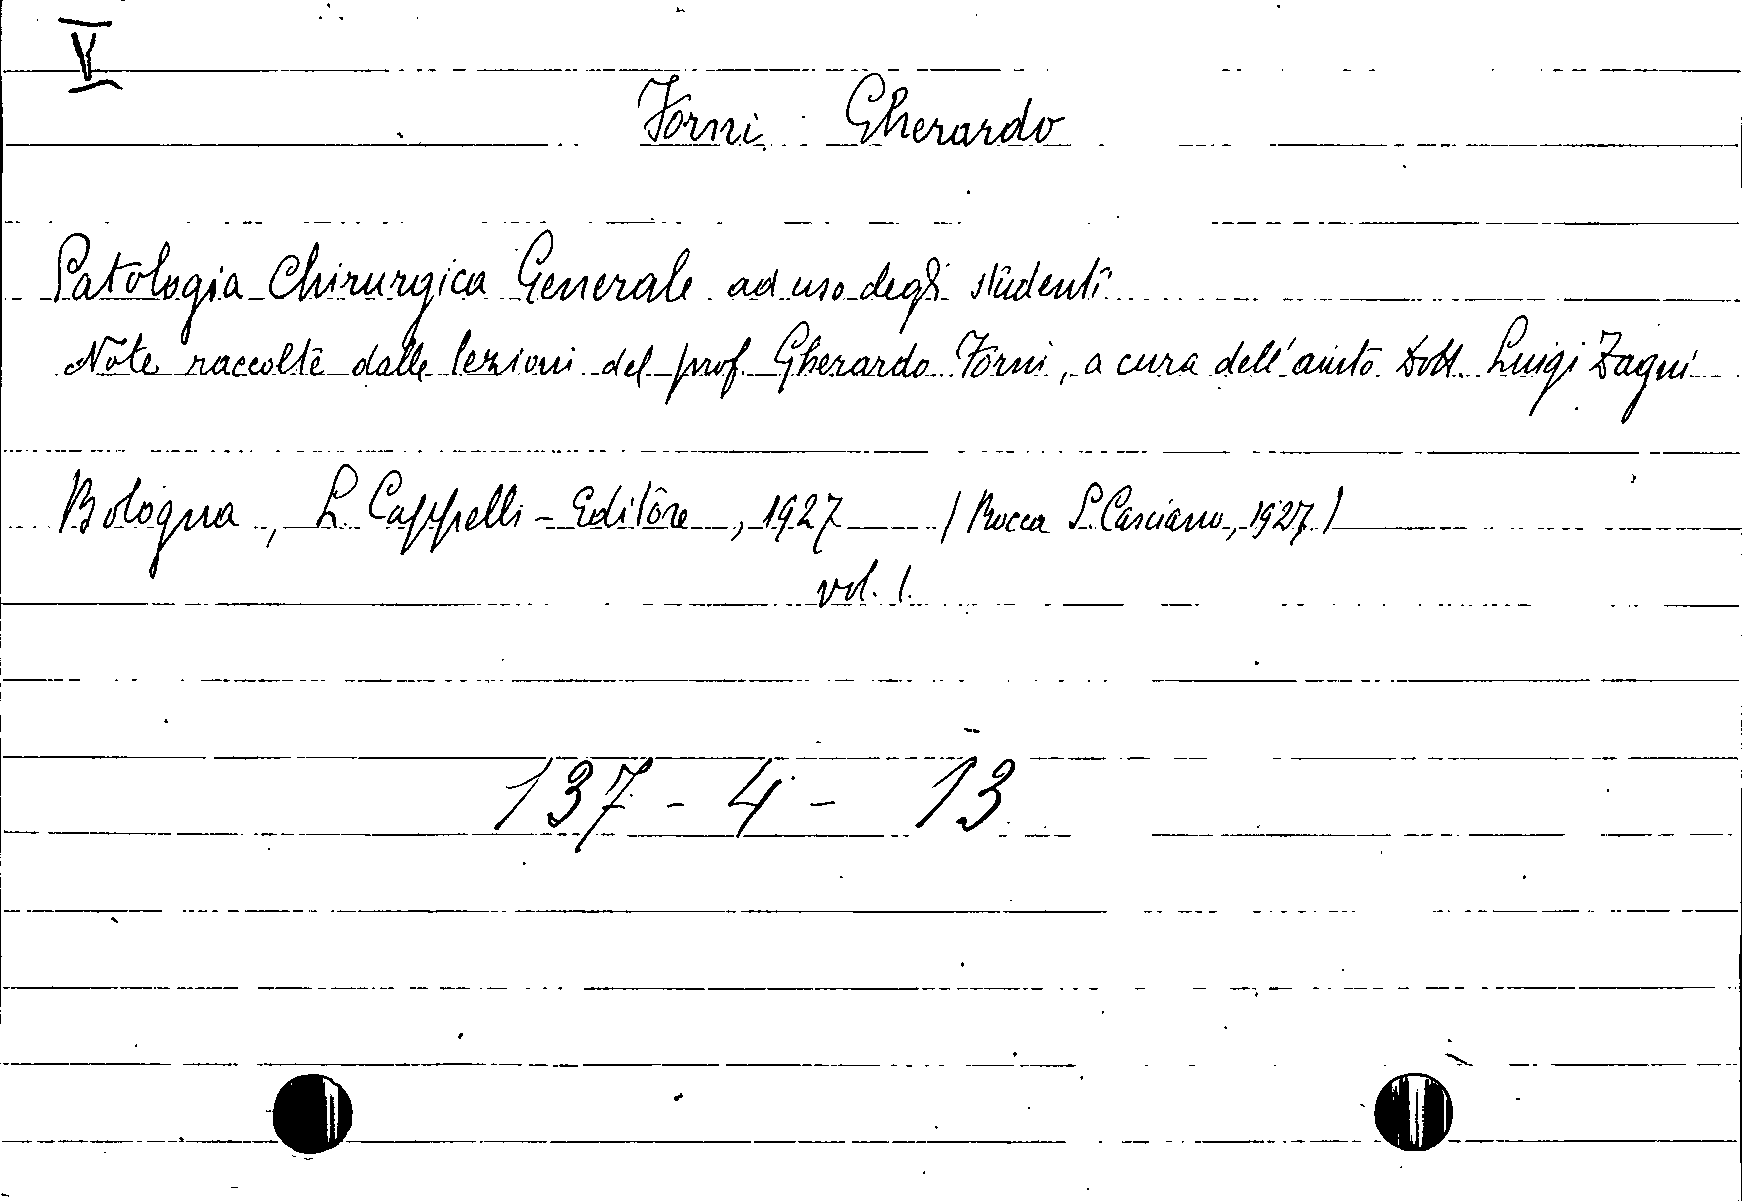 V
Forni Gherardo
Patologia Chirurgica Generale ad uso degli studenti
Note raccolte dalle lezioni del prof. Gherardo Forni, a cura dell'aiuto Dott. Luigi Zagni
Bologna, L. Cappelli - Editore, 1927 / Rocca S. Casciano, 1927 /
vol. 1.
137 - 4 - 13